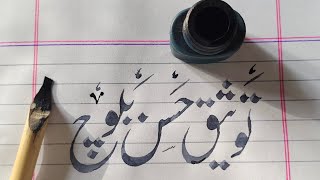 توثیق حَسن بَلوچ